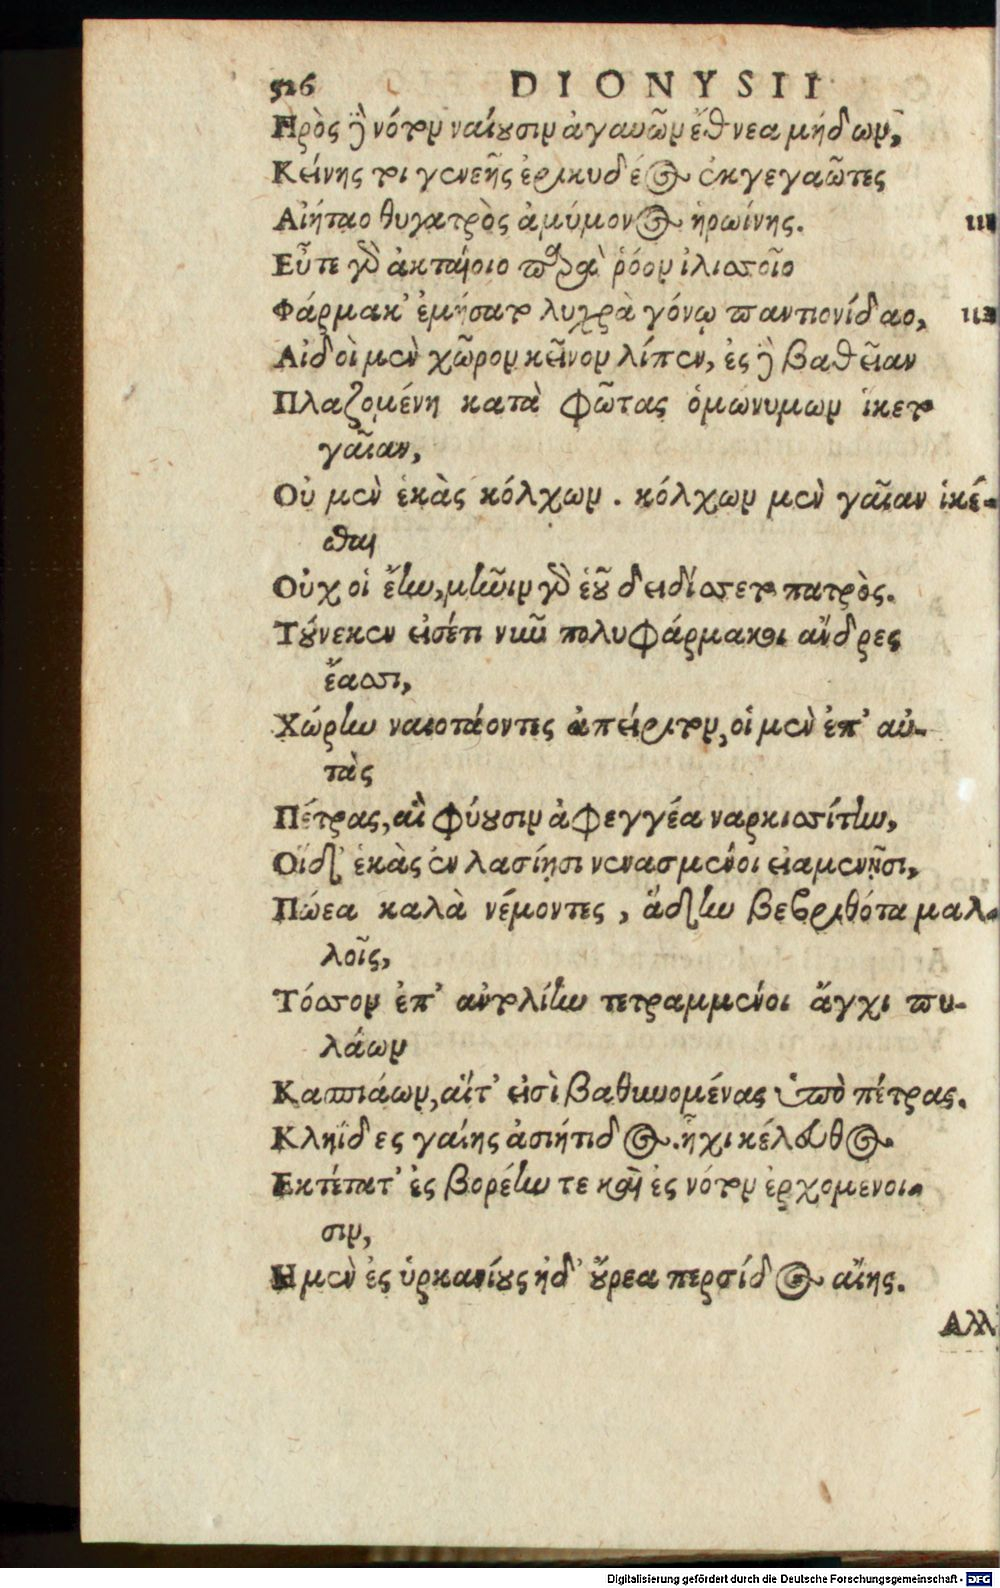 526 DIONYSII
Πρὸς δὲ νότον ναίουσιν ἀγαυῶν ἔθνεα μήδων,
Κείνης τοι γενεῆς ἐρικυδέος ἐκγεγαῶτες
Αἰήταο θυγατρὸς ἀμύμονος ἡρωίνης.
Εὖτε γὰρ ἀκταίοιο παρὰ ῥόον ἰλισσοῖο
Φάρμακ' ἐμήσατο λυγρὰ γόνῳ παντιονίδαο,
Αἰδοῖ μὲν χῶρον κεῖνον λίπεν, ἐς δὲ βαθεῖαν
Πλαζομένη κατὰ φῶτας ὁμώνυμων ἵκετο
γαῖαν,
Οὐ μὲν ἑκὰς κόλχων. κόλχων μὲν γαῖαν ἱκέ-
σθαι
Οὐχ οἱ ἔην, μῆνιν γὰρ ἑοῦ δειδίσσετο πατρὸς.
Τούνεκεν εἰσέτι νῦν πολυφάρμακοι ἄνδρες
ἔασσι,
Χώρην ναιοτάοντες ἀπείριτον, οἱ μὲν ἐπ' αὐ-
τὰς
Πέτρας, αἳ φύουσιν ἀφεγγέα ναρκισσίτην,
Οἳ δ' ἑκὰς ἐν λασίῃσι νενασμένοι εἱαμενῇσι,
Πώεα καλὰ νέμοντες, ἄδην βεβριθότα μαλ-
λοῖς,
Τόσσον ἐπ' αντολίην τετραμμένοι ἄγχι πυ-
λάων
Κασπιάων, αἵτ' εἰσὶ βαθυνομένας ὑπὸ πέτρας.
Κληῗδες γαίης ἀσιήτιδος. ἧχι κέλευθος
Εκτέτατ' ἐς βορέην τε καὶ ἐς νότον ἐρχομενοι-
σιν,
Η μὲν ἐς ὑρκανίους ἠδ' οὔρεα περσίδος αἴης.
Αλλ
Digitalisierung gefördert durch die Deutsche Forschungsgemeinschaft - DFG